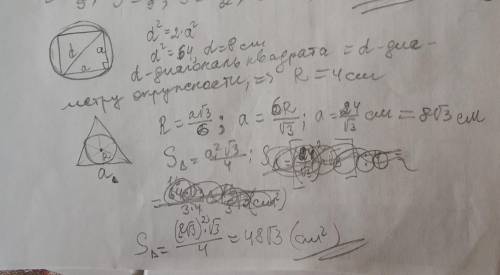 d² = 2·a²
d² = 64, d = 8 см
d - диагональ квадрата = d - диа-
метру окружности, => R = 4 см
R = a√3/6 ; a = 6R/√3 ; a = 24/√3 см = 8√3 см
S△ = a²√3/4 ;
S△ = (8√3)²·√3/4 = 48√3 (см²)
d
a
a
r
a△